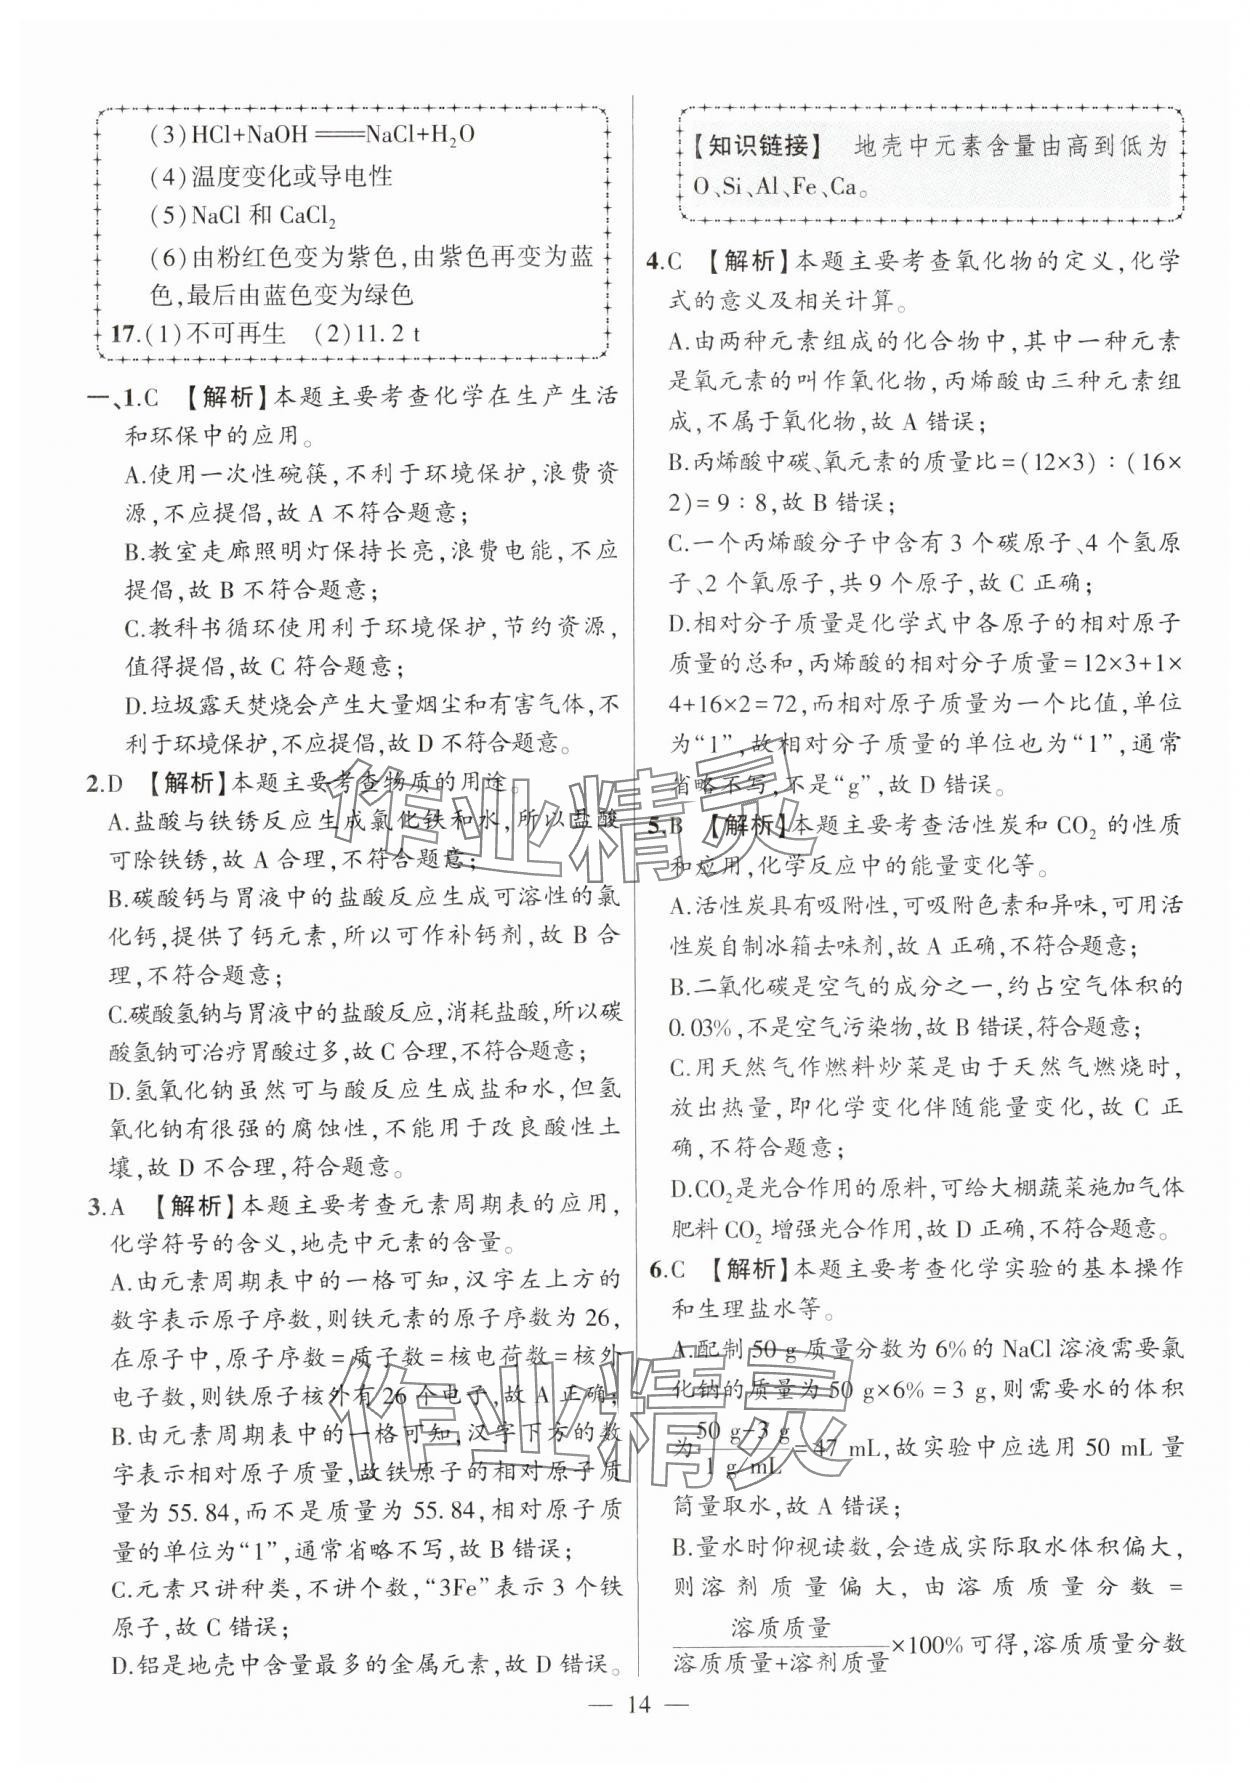 (3)HCl+NaOH══NaCl+H₂O
(4)温度变化或导电性
(5)NaCl 和 CaCl₂
(6)由粉红色变为紫色,由紫色再变为蓝
色,最后由蓝色变为绿色
17.(1)不可再生 (2)11.2 t
一、1.C 【解析】本题主要考查化学在生产生活
和环保中的应用。
A.使用一次性碗筷,不利于环境保护,浪费资
源,不应提倡,故 A 不符合题意;
B.教室走廊照明灯保持长亮,浪费电能,不应
提倡,故 B 不符合题意;
C.教科书循环使用利于环境保护,节约资源,
值得提倡,故 C 符合题意;
D.垃圾露天焚烧会产生大量烟尘和有害气体,不
利于环境保护,不应提倡,故 D 不符合题意。
2.D 【解析】本题主要考查物质的用途。
A.盐酸与铁锈反应生成氯化铁和水,所以盐酸
可除铁锈,故 A 合理,不符合题意;
B.碳酸钙与胃液中的盐酸反应生成可溶性的氯
化钙,提供了钙元素,所以可作补钙剂,故 B 合
理,不符合题意;
C.碳酸氢钠与胃液中的盐酸反应,消耗盐酸,所以碳
酸氢钠可治疗胃酸过多,故 C 合理,不符合题意;
D.氢氧化钠虽然可与酸反应生成盐和水,但氢
氧化钠有很强的腐蚀性,不能用于改良酸性土
壤,故 D 不合理,符合题意。
3.A 【解析】本题主要考查元素周期表的应用,
化学符号的含义,地壳中元素的含量。
A.由元素周期表中的一格可知,汉字左上方的
数字表示原子序数,则铁元素的原子序数为 26,
在原子中,原子序数=质子数=核电荷数=核外
电子数,则铁原子核外有 26 个电子,故 A 正确;
B.由元素周期表中的一格可知,汉字下方的数
字表示相对原子质量,故铁原子的相对原子质
量为 55.84,而不是质量为 55.84,相对原子质
量的单位为“1”,通常省略不写,故 B 错误;
C.元素只讲种类,不讲个数,“3Fe”表示 3 个铁
原子,故 C 错误;
D.铝是地壳中含量最多的金属元素,故 D 错误。
【知识链接】 地壳中元素含量由高到低为
O、Si、Al、Fe、Ca。
4.C 【解析】本题主要考查氧化物的定义,化学
式的意义及相关计算。
A.由两种元素组成的化合物中,其中一种元素
是氧元素的叫作氧化物,丙烯酸由三种元素组
成,不属于氧化物,故 A 错误;
B.丙烯酸中碳、氧元素的质量比=(12×3)∶(16×
2)=9∶8,故 B 错误;
C.一个丙烯酸分子中含有 3 个碳原子、4 个氢原
子、2 个氧原子,共 9 个原子,故 C 正确;
D.相对分子质量是化学式中各原子的相对原子
质量的总和,丙烯酸的相对分子质量=12×3+1×
4+16×2=72,而相对原子质量为一个比值,单位
为“1”,故相对分子质量的单位也为“1”,通常
省略不写,不是“g”,故 D 错误。
5.B 【解析】本题主要考查活性炭和 CO₂ 的性质
和应用,化学反应中的能量变化等。
A.活性炭具有吸附性,可吸附色素和异味,可用活
性炭自制冰箱去味剂,故 A 正确,不符合题意;
B.二氧化碳是空气的成分之一,约占空气体积的
0.03%,不是空气污染物,故 B 错误,符合题意;
C.用天然气作燃料炒菜是由于天然气燃烧时,
放出热量,即化学变化伴随能量变化,故 C 正
确,不符合题意;
D.CO₂是光合作用的原料,可给大棚蔬菜施加气体
肥料 CO₂ 增强光合作用,故 D 正确,不符合题意。
6.C 【解析】本题主要考查化学实验的基本操作
和生理盐水等。
A.配制 50 g 质量分数为 6%的 NaCl 溶液需要氯
化钠的质量为 50 g×6%=3 g,则需要水的体积
为 (50 g-3 g)/(1 g/mL)=47 mL,故实验中应选用 50 mL 量
筒量取水,故 A 错误;
B.量水时仰视读数,会造成实际取水体积偏大,
则溶剂质量偏大,由溶质质量分数=
溶质质量
溶质质量+溶剂质量×100%可得,溶质质量分数
— 14 —
作业精灵
作业精灵